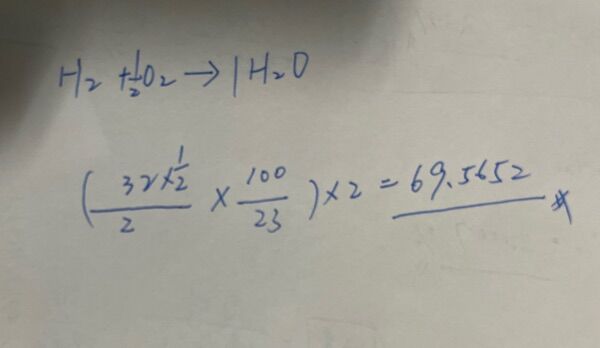 H₂ + ½O₂ → 1H₂O
(32×½/2 × 100/23)×2 = 69.5652 #